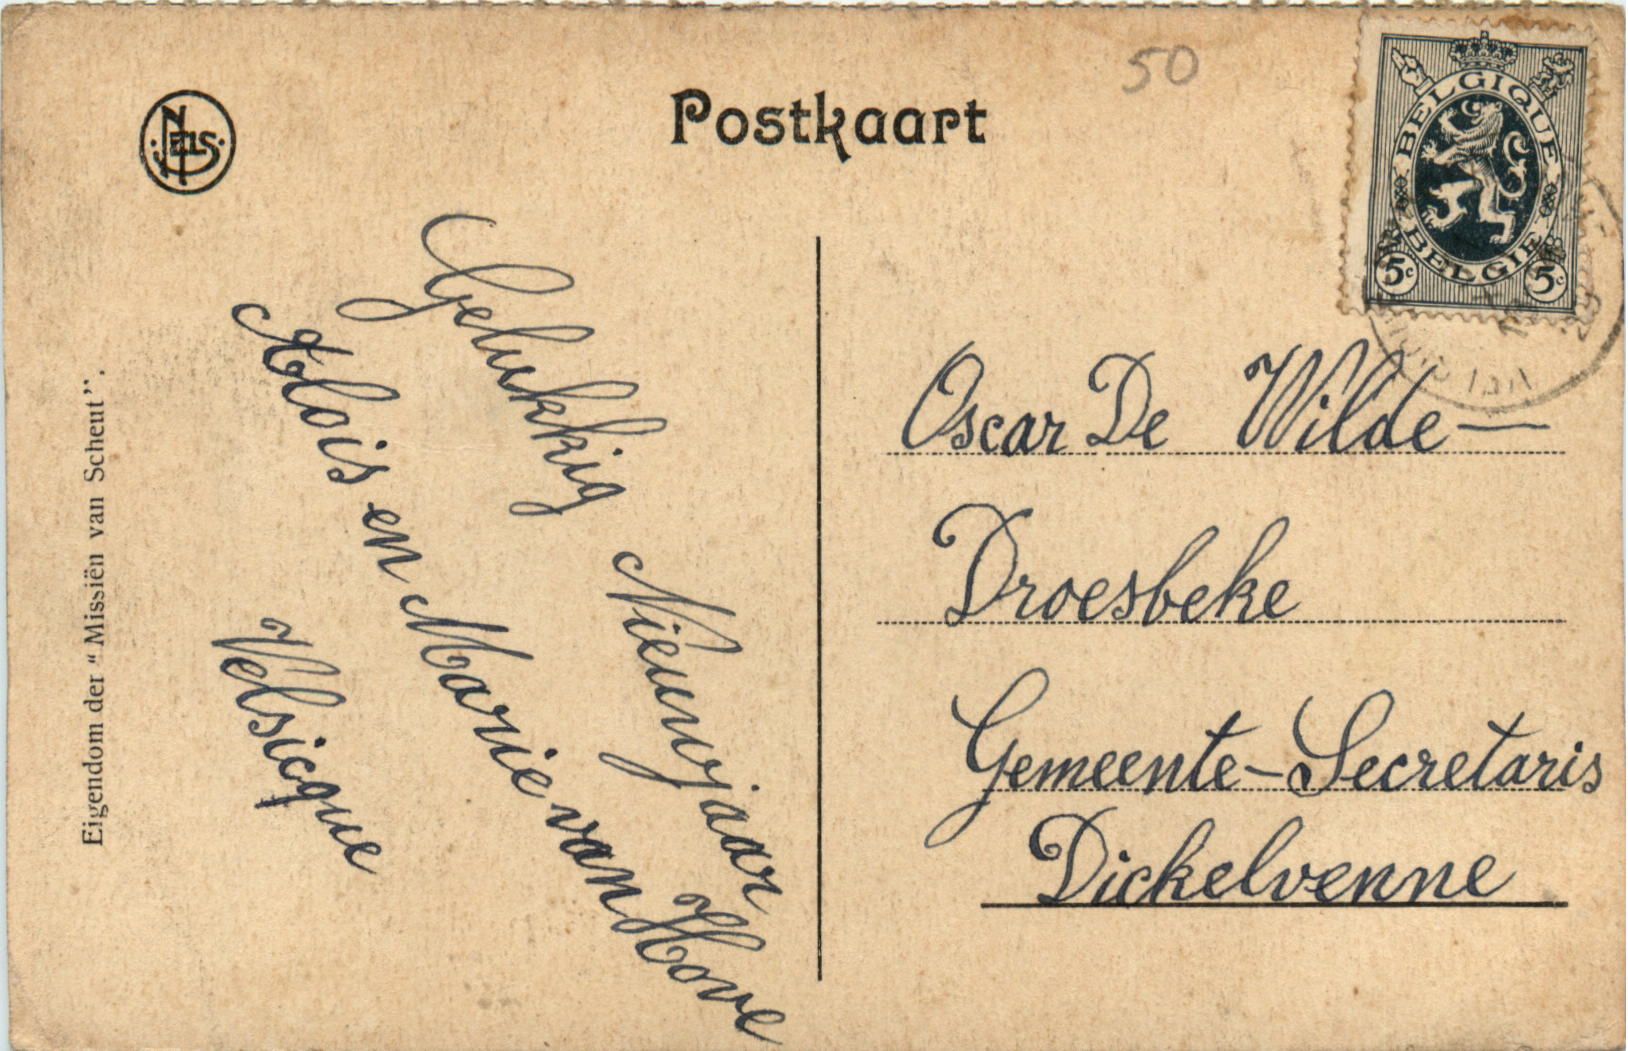 50
Postkaart
NELS
BELGIQUE
BELGIË
5c 5c
Eigendom der "Missiën van Scheut".
Gelukkig Nieuwjaar
Alois en Marie van Hove
Velsicque
Oscar De Wilde—
Droesbeke
Gemeente-Secretaris
Dickelvenne